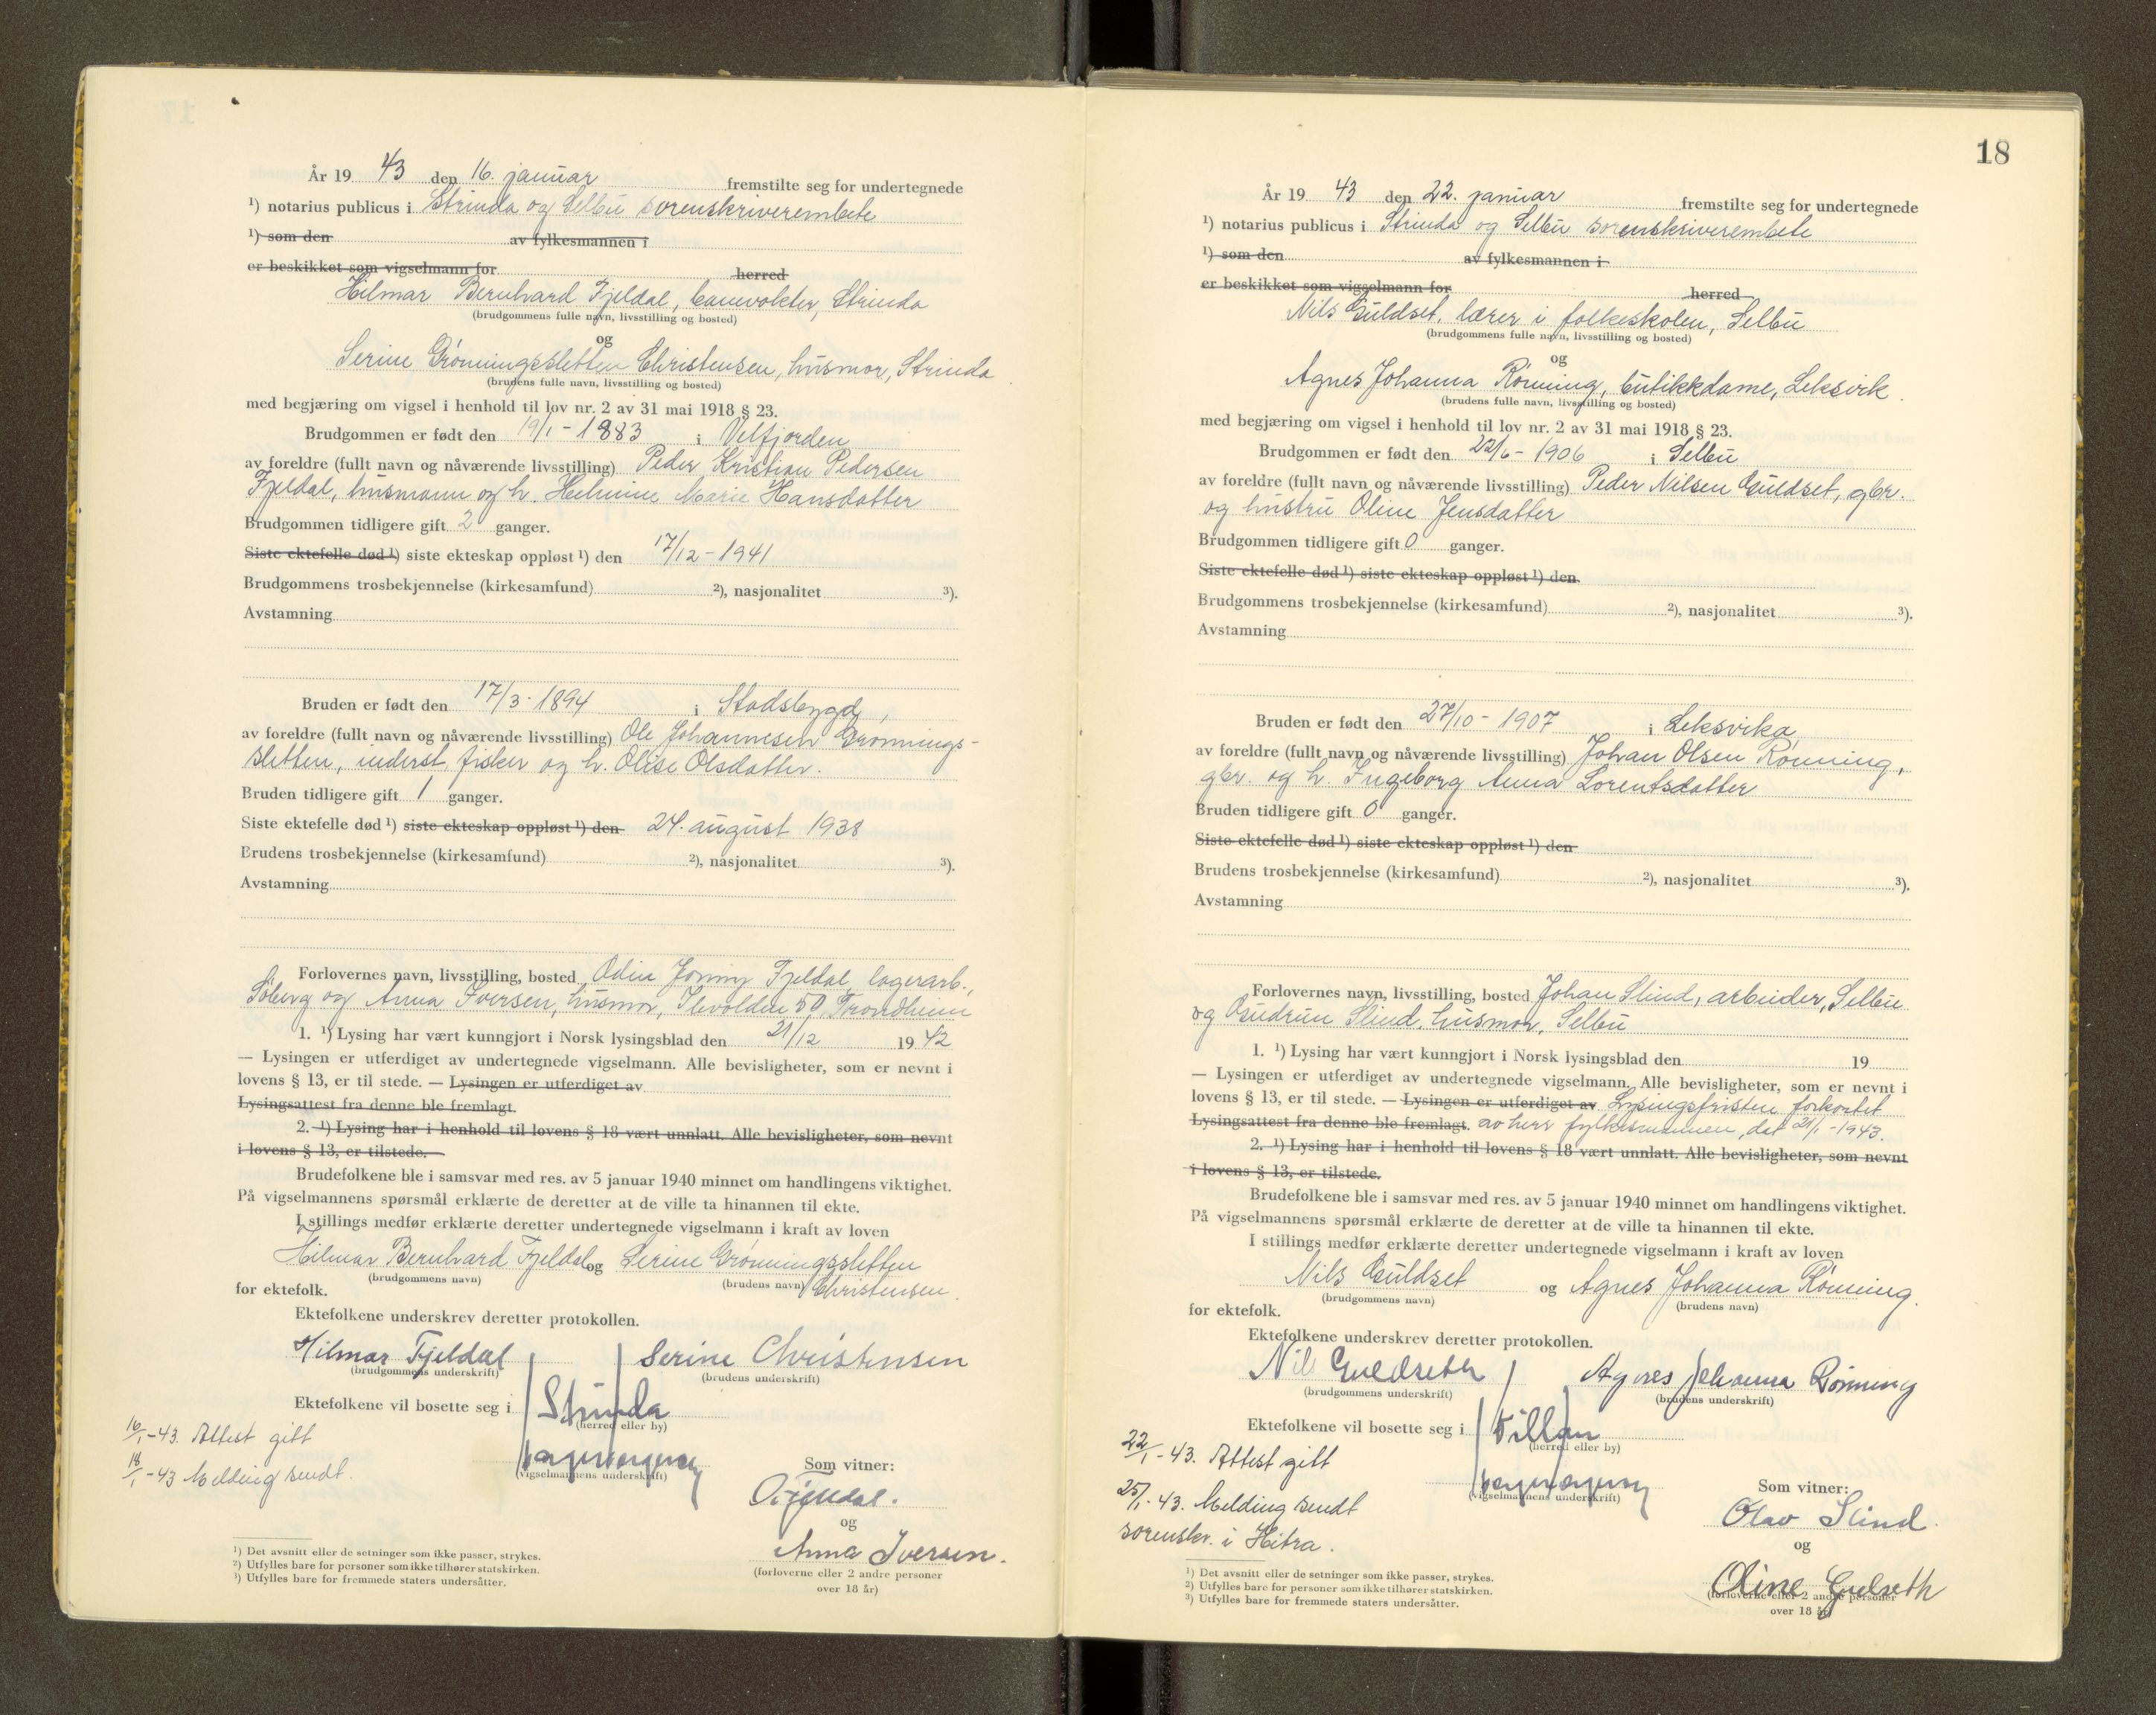 År 19 43 den 16. januar fremstilte seg for undertegnede
¹) notarius publicus i Strinda og Selbu sorenskriverembete
¹) som den av fylkesmannen i
er beskikket som vigselmann for herred
Hilmar Bernhard Fjeldal, banevokter, Strinda
(brudgommens fulle navn, livsstilling og bosted)
og
Serine Grønningssletten Christensen, husmor, Strinda
(brudens fulle navn, livsstilling og bosted)
med begjæring om vigsel i henhold til lov nr. 2 av 31 mai 1918 § 23.
Brudgommen er født den 19/1-1883 i Velfjorden
av foreldre (fullt navn og nåværende livsstilling) Peder Kristian Pedersen
Fjeldal, husmann og h. Helmine Marie Hansdatter
Brudgommen tidligere gift 2 ganger.
Siste ektefelle død ¹) siste ekteskap oppløst ¹) den 17/12-1941
Brudgommens trosbekjennelse (kirkesamfund) ²), nasjonalitet ³).
Avstamning
Bruden er født den 17/3-1894 i Stadsbygd,
av foreldre (fullt navn og nåværende livsstilling) Ole Johannesen Grønnings-
sletten, inderst, fisker og h. Olise Olsdatter.
Bruden tidligere gift 1 ganger.
Siste ektefelle død ¹) siste ekteskap oppløst ¹) den 24. august 1938
Brudens trosbekjennelse (kirkesamfund) ²), nasjonalitet ³).
Avstamning
Forlovernes navn, livsstilling, bosted Odin Fjeldal, lagerarb.,
og Anna Iversen, husmor, Ilevolden 50, Trondheim
1. ¹) Lysing har vært kunngjort i Norsk lysingsblad den 21/12 19 42
— Lysingen er utferdiget av undertegnede vigselmann. Alle bevisligheter, som er nevnt i
lovens § 13, er til stede. — Lysingen er utferdiget av
Lysingsattest fra denne ble fremlagt.
2. ¹) Lysing har i henhold til lovens § 18 vært unnlatt. Alle bevisligheter, som nevnt
i lovens § 13, er tilstede. —
Brudefolkene ble i samsvar med res. av 5 januar 1940 minnet om handlingens viktighet.
På vigselmannens spørsmål erklærte de deretter at de ville ta hinannen til ekte.
I stillings medfør erklærte deretter undertegnede vigselmann i kraft av loven
Hilmar Bernhard Fjeldal og Serine Grønningssletten
(brudgommens navn) (brudens navn) Christensen.
for ektefolk.
Ektefolkene underskrev deretter protokollen.
Hilmar Fjeldal Serine Christensen
(brudgommens underskrift) (brudens underskrift)
Ektefolkene vil bosette seg i Strinda
(herred eller by)
16/1-43. Attest gitt
18/1-43 Melding sendt.
(vigselmannens underskrift)
Som vitner:
O. Fjeldal.
og
Anna Iversen.
(forloverne eller 2 andre personer
over 18 år)
¹) Det avsnitt eller de setninger som ikke passer, strykes.
²) Utfylles bare for personer som ikke tilhører statskirken.
³) Utfylles bare for fremmede staters undersåtter.
18
År 19 43 den 22. januar fremstilte seg for undertegnede
¹) notarius publicus i Strinda og Selbu sorenskriverembete
¹) som den av fylkesmannen i
er beskikket som vigselmann for herred
Nils Guldset, lærer i folkeskolen, Selbu
(brudgommens fulle navn, livsstilling og bosted)
og
Agnes Johanna Rønning, butikkdame, Leksvik.
(brudens fulle navn, livsstilling og bosted)
med begjæring om vigsel i henhold til lov nr. 2 av 31 mai 1918 § 23.
Brudgommen er født den 22/6-1906 i Selbu
av foreldre (fullt navn og nåværende livsstilling) Peder Nilsen Guldset, gbr.
og hustru Oline Jensdatter
Brudgommen tidligere gift 0 ganger.
Siste ektefelle død ¹) siste ekteskap oppløst ¹) den
Brudgommens trosbekjennelse (kirkesamfund) ²), nasjonalitet ³).
Avstamning
Bruden er født den 27/10-1907 i Leksvika
av foreldre (fullt navn og nåværende livsstilling) Johan Olsen Rønning,
gbr. og h. Ingeborg Anna Lorentsdatter
Bruden tidligere gift 0 ganger.
Siste ektefelle død ¹) siste ekteskap oppløst ¹) den
Brudens trosbekjennelse (kirkesamfund) ²), nasjonalitet ³).
Avstamning
Forlovernes navn, livsstilling, bosted Johan Slind, arbeider, Selbu
og Gudrun Slind, husmor, Selbu
1. ¹) Lysing har vært kunngjort i Norsk lysingsblad den 19
— Lysingen er utferdiget av undertegnede vigselmann. Alle bevisligheter, som er nevnt i
lovens § 13, er til stede. — Lysingen er utferdiget av Lysingsfristen forkortet
Lysingsattest fra denne ble fremlagt. av herr fylkesmannen, dat 21/1-1943.
2. ¹) Lysing har i henhold til lovens § 18 vært unnlatt. Alle bevisligheter, som nevnt
i lovens § 13, er tilstede.
Brudefolkene ble i samsvar med res. av 5 januar 1940 minnet om handlingens viktighet.
På vigselmannens spørsmål erklærte de deretter at de ville ta hinannen til ekte.
I stillings medfør erklærte deretter undertegnede vigselmann i kraft av loven
Nils Guldset og Agnes Johanna Rønning.
(brudgommens navn) (brudens navn)
for ektefolk.
Ektefolkene underskrev deretter protokollen.
Nils Guldseth Agnes Johanna Rønning
(brudgommens underskrift) (brudens underskrift)
Ektefolkene vil bosette seg i Fillan
(herred eller by)
22/1-43. Attest gitt
25/1-43. Melding sendt
sorenskr. i Hitra.
(vigselmannens underskrift)
Som vitner:
Olav Slind.
og
Oline Guldseth
(forloverne eller 2 andre personer
over 18 år)
¹) Det avsnitt eller de setninger som ikke passer, strykes.
²) Utfylles bare for personer som ikke tilhører statskirken.
³) Utfylles bare for fremmede staters undersåtter.